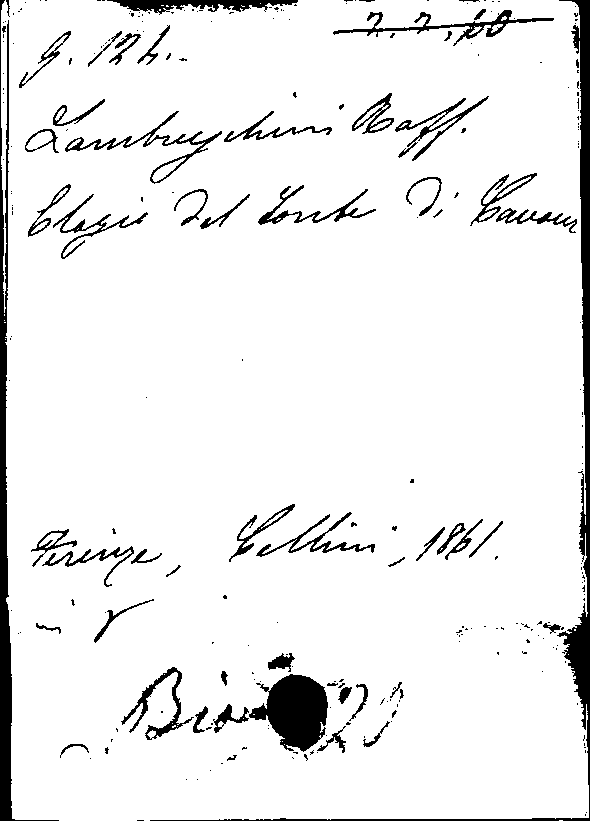 g. 124. 7.7.60
Lambruschini Raff.
Elogio del Conte di Cavour
Firenze, Cellini, 1861.
in 8
Bio 20